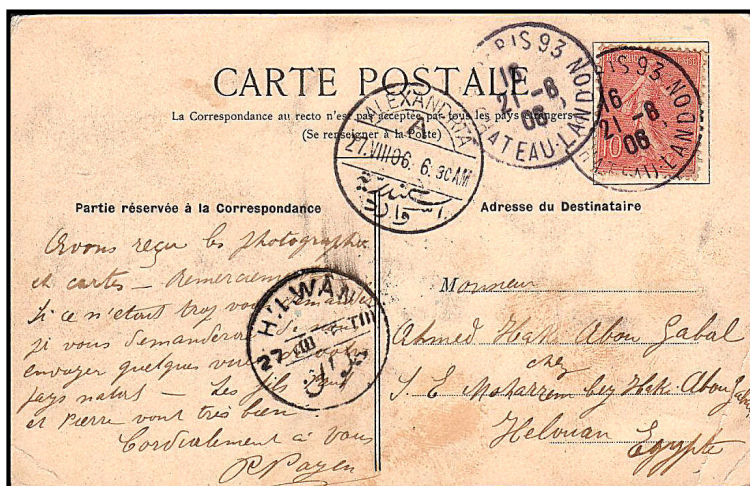 CARTE POSTALE
La Correspondance au recto n'est pas acceptée par tous les pays étrangers
(Se renseigner à la Poste)
PARIS 93
16
21-8
06
CHATEAU-LANDON
RIS 93
16
21-8
06
LANDON
10
ALEXANDRIA
27.VIII 06. 6.30AM
اسكندرية
Partie réservée à la Correspondance
Avons reçu les photographies
et cartes — Remerciements
Si ce n'était trop vous demander
je vous demanderai de
envoyer quelques vues de votre
pays natal — Les fils
et Pierre vont très bien
Cordialement à vous
P Payen
HILWAN
27 VIII
حلوان
Adresse du Destinataire
Monsieur
Ahmed Hak Abou Gabal
chez
S. E. Moharrem bey Hak. Abou Gabal
Helouan
Egypte